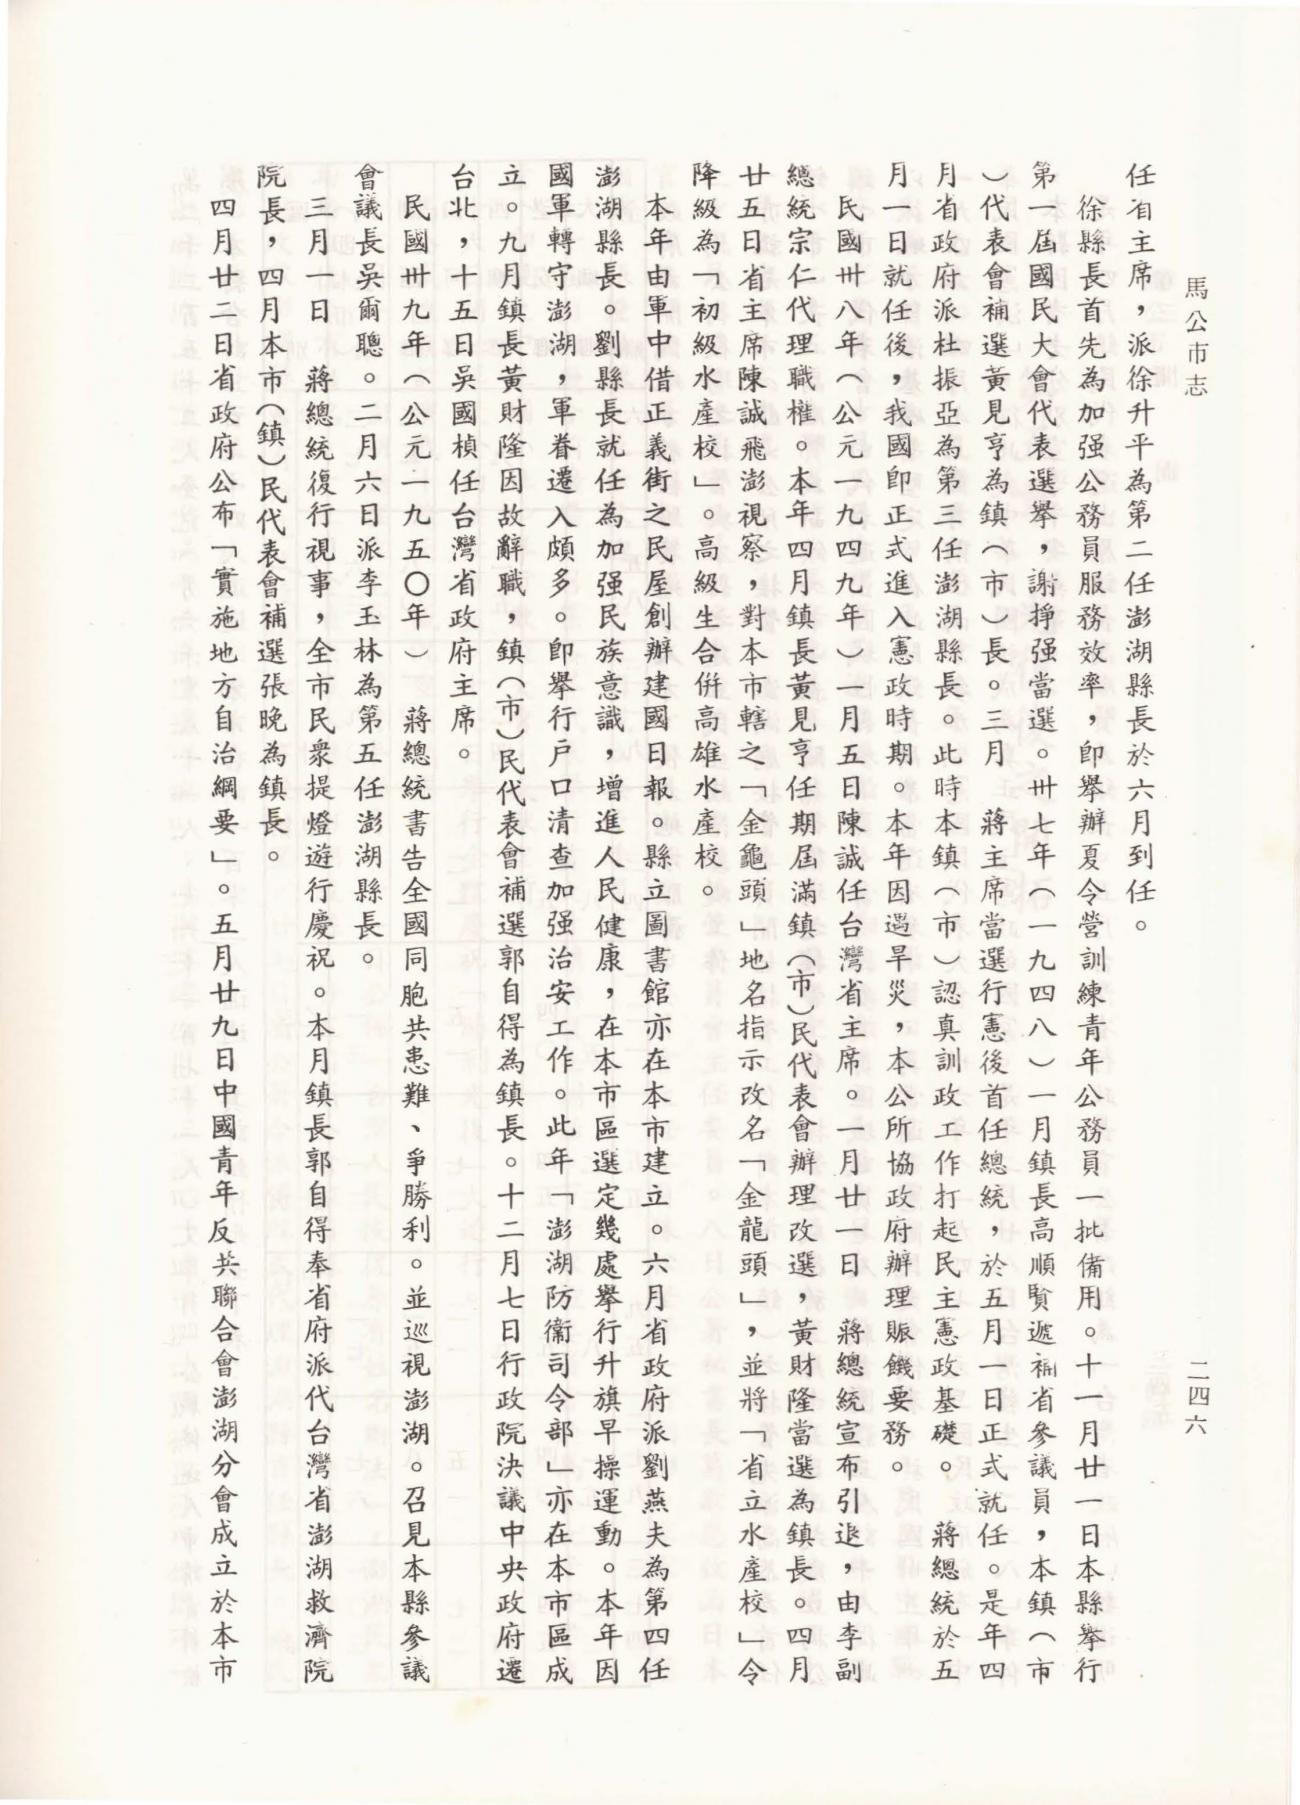 馬公市志
二四六
任省主席，派徐升平為第二任澎湖縣長於六月到任。
徐縣長首先為加强公務員服務效率，卽舉辦夏令營訓練青年公務員一批備用。十一月廿一日本縣舉行
第一屆國民大會代表選舉，謝掙强當選。卅七年（一九四八）一月鎮長高順賢遞補省參議員，本鎮（市
）代表會補選黃見亨為鎮（市）長。三月　蔣主席當選行憲後首任總統，於五月一日正式就任。是年四
月省政府派杜振亞為第三任澎湖縣長。此時本鎮（市）認真訓政工作打起民主憲政基礎。　蔣總統於五
月一日就任後，我國卽正式進入憲政時期。本年因遇旱災，本公所協政府辦理賑饑要務。
民國卅八年（公元一九四九年）一月五日陳誠任台灣省主席。一月廿一日　蔣總統宣布引退，由李副
總統宗仁代理職權。本年四月鎮長黃見亨任期屆滿鎮（市）民代表會辦理改選，黃財隆當選為鎮長。四月
廿五日省主席陳誠飛澎視察，對本市轄之「金龜頭」地名指示改名「金龍頭」，並將「省立水產校」令
降級為「初級水產校」。高級生合併高雄水產校。
本年由軍中借正義街之民屋創辦建國日報。縣立圖書館亦在本市建立。六月省政府派劉燕夫為第四任
澎湖縣長。劉縣長就任為加强民族意識，增進人民健康，在本市區選定幾處舉行升旗早操運動。本年因
國軍轉守澎湖，軍眷遷入頗多。卽舉行戶口清查加强治安工作。此年「澎湖防衞司令部」亦在本市區成
立。九月鎮長黃財隆因故辭職，鎮（市）民代表會補選郭自得為鎮長。十二月七日行政院決議中央政府遷
台北，十五日吳國楨任台灣省政府主席。
民國卅九年（公元一九五〇年）　蔣總統書告全國同胞共患難、爭勝利。並巡視澎湖。召見本縣參議
會議長吳爾聰。二月六日派李玉林為第五任澎湖縣長。
三月一日　蔣總統復行視事，全市民衆提燈遊行慶祝。本月鎮長郭自得奉省府派代台灣省澎湖救濟院
院長，四月本市（鎮）民代表會補選張晚為鎮長。
四月廿二日省政府公布「實施地方自治綱要」。五月廿九日中國青年反共聯合會澎湖分會成立於本市